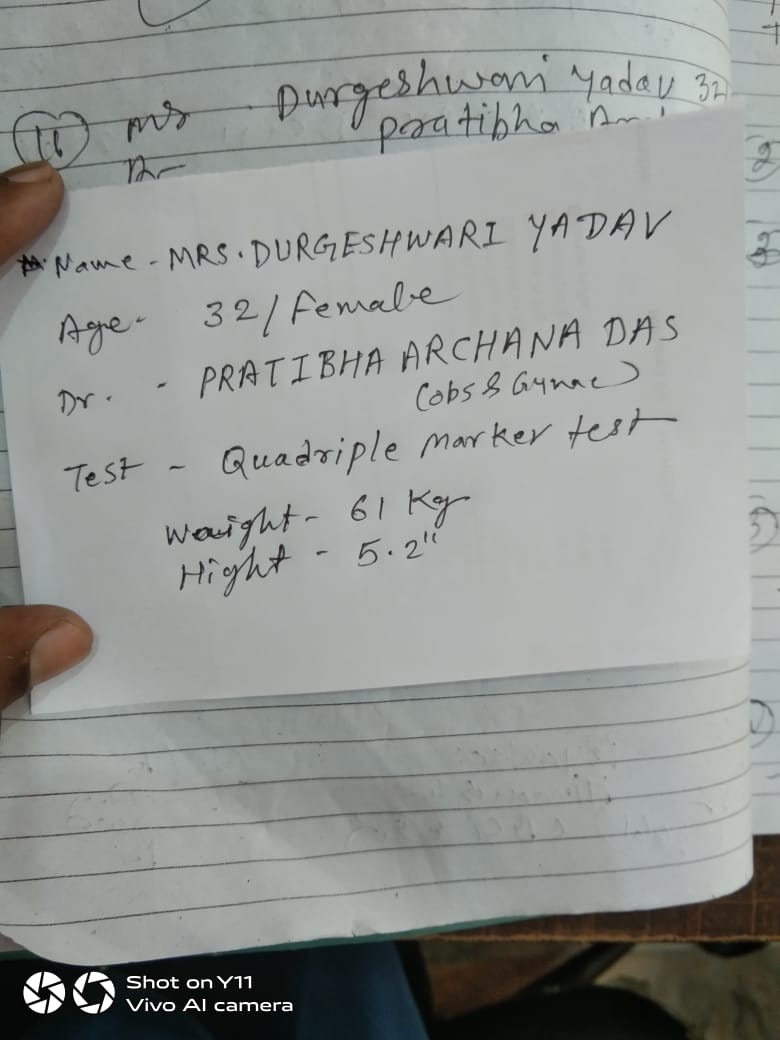 16 Ms Durgeshwari Yadav 32
Dr Pratibha
Name - MRS. DURGESHWARI YADAV
Age - 32/Female
Dr. - PRATIBHA ARCHANA DAS
(obs & Gynae)
Test - Quadriple Marker test
Waight - 61 Kg
Hight - 5.2"
Shot on Y11
Vivo AI camera